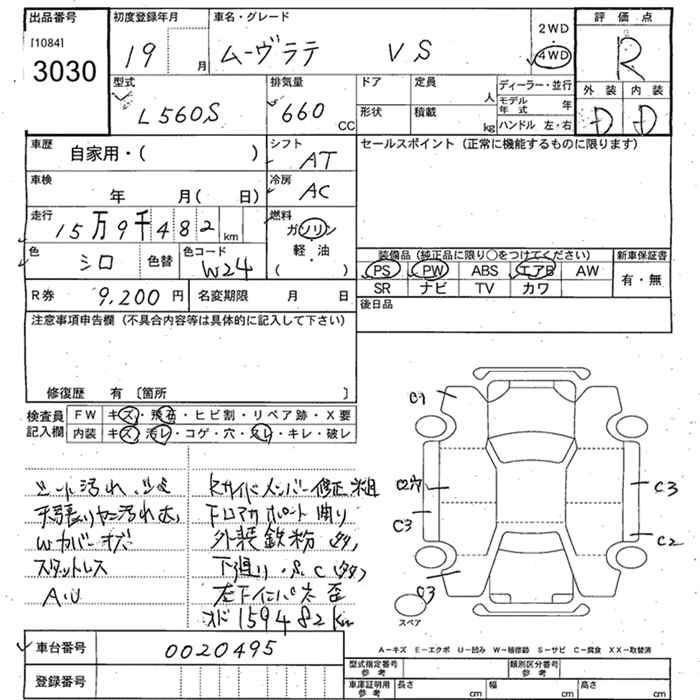 出品番号 初度登録年月 車名・グレード 2WD 評価点
[1084] 3030 19 月 ムーヴラテ VS 4WD R
型式 排気量 ドア 定員 人 ディーラー・並行 外装 内装
L560S 660 CC 形状 積載 kg モデル年式 年 D D
ハンドル 左・右
車歴 自家用・( ) シフト AT セールスポイント (正常に機能するものに限ります)
車検 年 月( 日) 冷房 AC
走行 15万9千482 km 燃料 ガソリン
軽・油
( )
色 シロ 色替 色コード W24 装備品 (純正品に限り○をつけてください) 新車保証書
PS PW ABS エアB AW 有・無
SR ナビ TV カワ
R券 9,200円 名変期限 月 日 後日品
注意事項申告欄 (不具合内容等は具体的に記入して下さい)
修復歴 有 〔箇所 〕
検査員 FW キズ・飛石・ヒビ割・リペア跡・X要
記入欄 内装 キズ・汚レ・コゲ・穴・スレ・キレ・破レ
シート汚れ
天張りヤニ汚れ大
Wカバーキズ
スタットレス
A.U
Rサイドメンバー修正 粗
下回り・S,C(多)
159482km
C3
C3
C2
スペア
A-キズ E-エクボ U-凹み W-補修跡 S-サビ C-腐食 XX-取替済
車台番号 0020495
登録番号
型式指定番号 参考 類別区分番号 参考
車庫証明用 参考 長さ cm 幅 cm 高さ cm